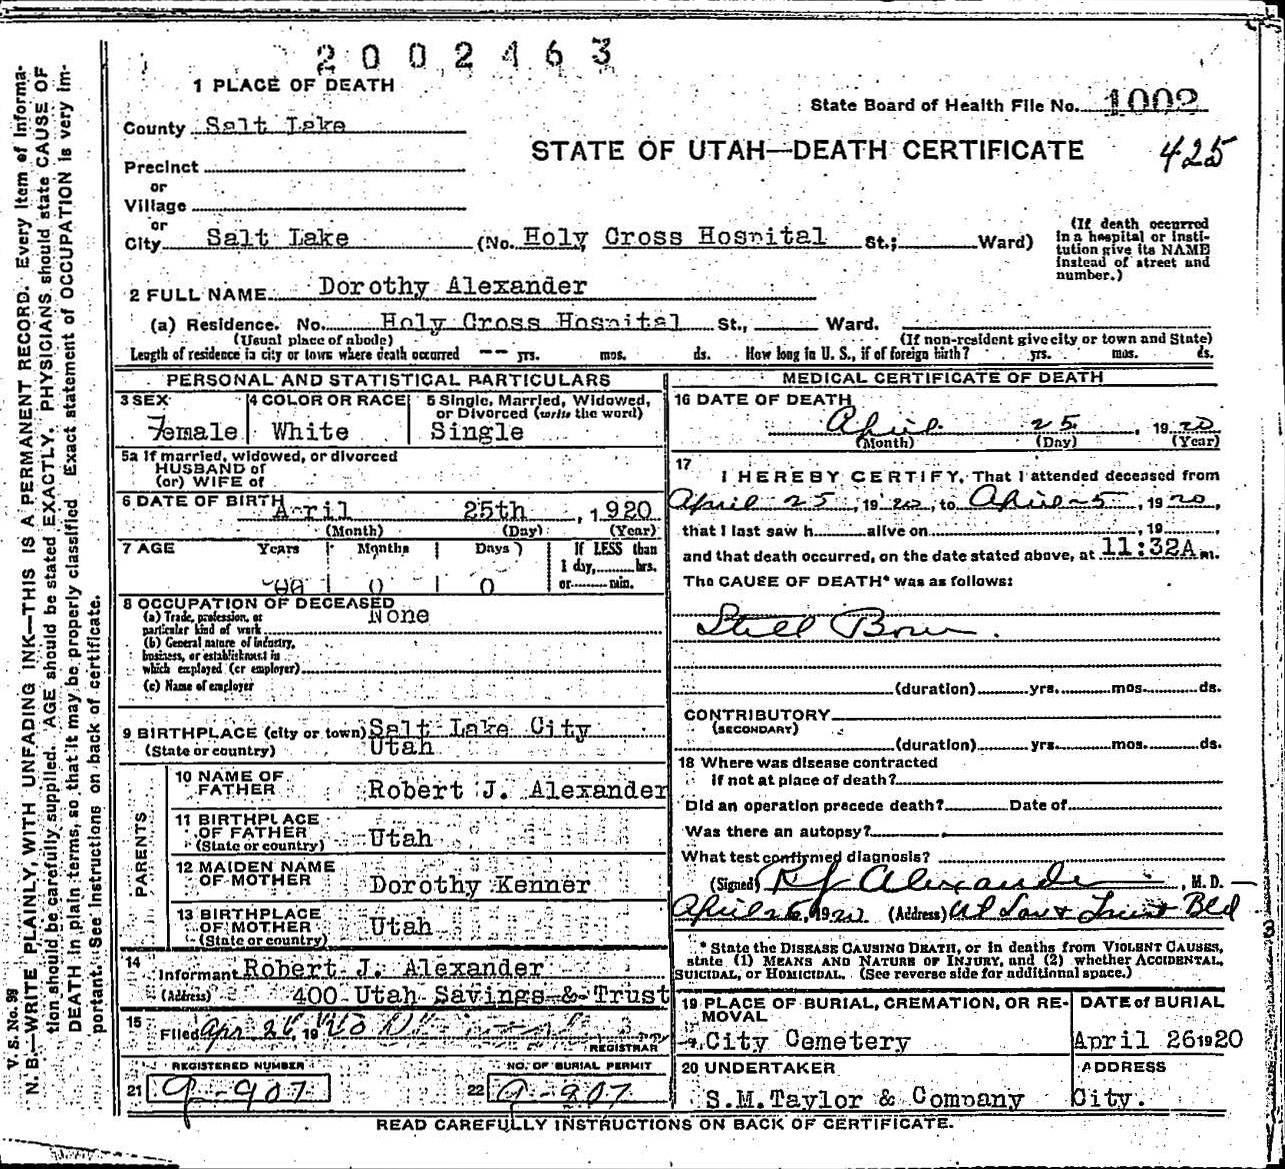 2002463
1 PLACE OF DEATH
State Board of Health File No. 1002
County Salt Lake
STATE OF UTAH—DEATH CERTIFICATE 425
Precinct
or
Village
or
City Salt Lake (No. Holy Cross Hospital St.; Ward)
(If death occurred
in a hospital or insti-
tution give its NAME
instead of street and
number.)
2 FULL NAME Dorothy Alexander
(a) Residence. No. Holy Cross Hospital St., Ward.
(Usual place of abode) (If non-resident give city or town and State)
Length of residence in city or town where death occurred -- yrs. mos. ds. How long in U. S., if of foreign birth? yrs. mos. ds.
PERSONAL AND STATISTICAL PARTICULARS
3 SEX
Female
4 COLOR OR RACE
White
5 Single, Married, Widowed,
or Divorced (write the word)
Single
5a If married, widowed, or divorced
HUSBAND of
(or) WIFE of
6 DATE OF BIRTH April 25th, 1920
(Month) (Day) (Year)
7 AGE Years Months Days
0 0
If LESS than
1 day, hrs.
or min.
8 OCCUPATION OF DECEASED
(a) Trade, profession, or None
particular kind of work
(b) General nature of industry,
business, or establishment in
which employed (or employer)
(c) Name of employer
9 BIRTHPLACE (city or town) Salt Lake City
(State or country) Utah
PARENTS
10 NAME OF
FATHER Robert J. Alexander
11 BIRTHPLACE
OF FATHER
(State or country) Utah
12 MAIDEN NAME
OF MOTHER Dorothy Kenner
13 BIRTHPLACE
OF MOTHER
(State or country) Utah
14
Informant Robert J. Alexander
(Address) 400 Utah Savings & Trust
15
Filed Apr 26, 1920
REGISTRAR
REGISTERED NUMBER
21 9-907
NO. OF BURIAL PERMIT
22 9-907
MEDICAL CERTIFICATE OF DEATH
16 DATE OF DEATH
April 25, 1920
(Month) (Day) (Year)
17
I HEREBY CERTIFY, That I attended deceased from
April 25, 1920, to April 25, 1920,
that I last saw h alive on , 19
and that death occurred, on the date stated above, at 11:32A m.
The CAUSE OF DEATH* was as follows:
Still Born.
(duration) yrs. mos. ds.
CONTRIBUTORY
(SECONDARY)
(duration) yrs. mos. ds.
18 Where was disease contracted
if not at place of death?
Did an operation precede death? Date of
Was there an autopsy?
What test confirmed diagnosis?
(Signed) R J Alexander, M.D.
April 26, 1920 (Address) Ut Sav & Trust Bld
* State the DISEASE CAUSING DEATH, or in deaths from VIOLENT CAUSES,
state (1) MEANS AND NATURE OF INJURY, and (2) whether ACCIDENTAL,
SUICIDAL, or HOMICIDAL. (See reverse side for additional space.)
19 PLACE OF BURIAL, CREMATION, OR RE-
MOVAL
City Cemetery
DATE of BURIAL
April 26 1920
20 UNDERTAKER
S.M.Taylor & Company
ADDRESS
City.
READ CAREFULLY INSTRUCTIONS ON BACK OF CERTIFICATE.
V. S. No. 99
N. B.—WRITE PLAINLY, WITH UNFADING INK—THIS IS A PERMANENT RECORD. Every Item of Informa-
tion should be carefully supplied. AGE should be stated EXACTLY. PHYSICIANS should state CAUSE OF
DEATH in plain terms, so that it may be properly classified. Exact statement of OCCUPATION is very im-
portant. See Instructions on back of certificate.